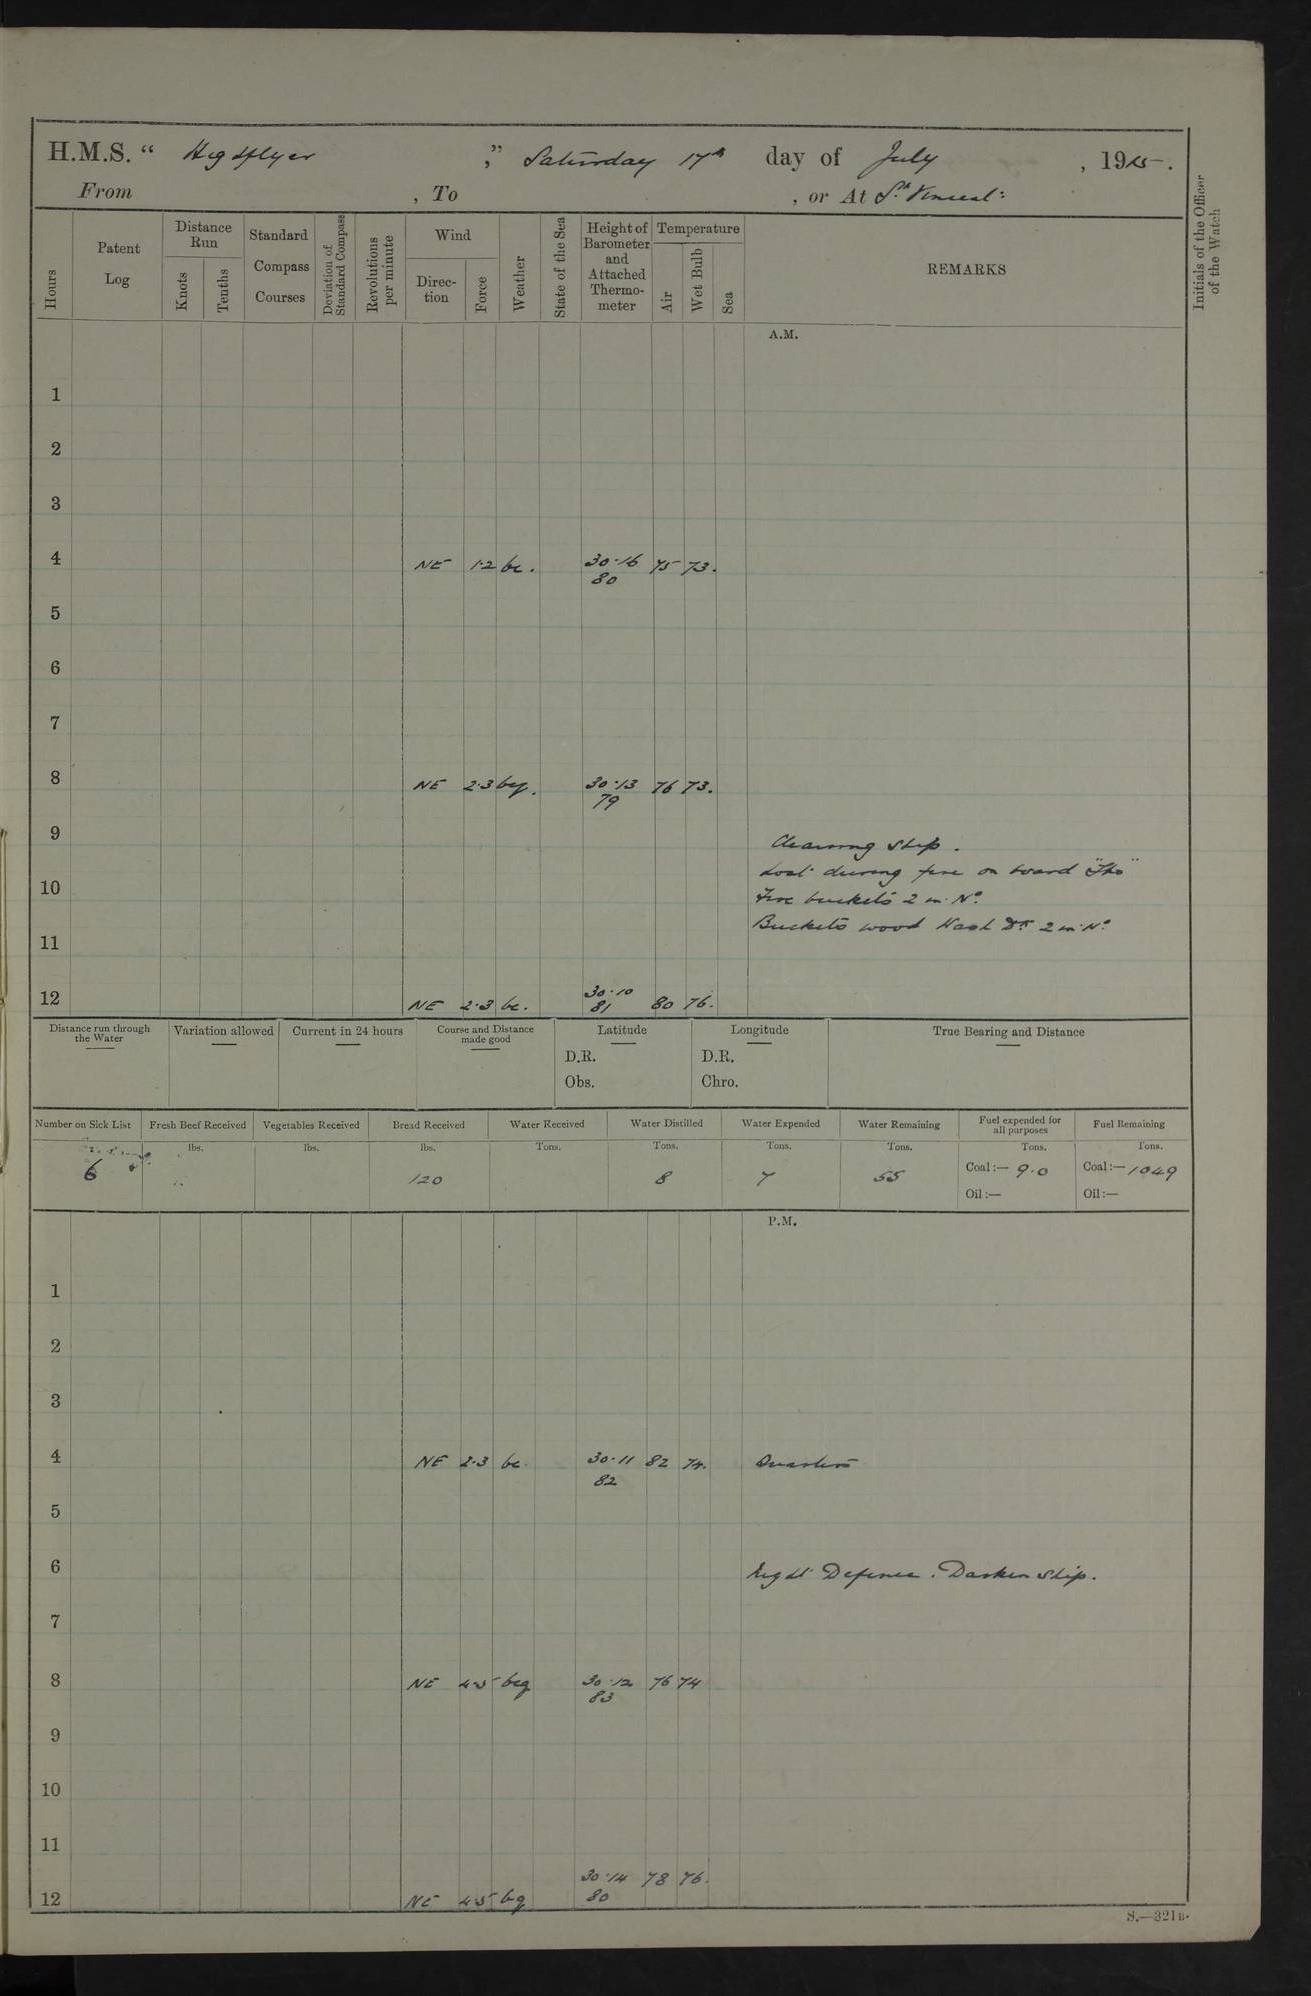 H.M.S. " Highflyer ," Saturday 17th day of July , 1915.
From , To , or At St. Vincent:
Hours
Patent Log
Distance Run
Knots
Tenths
Standard Compass Courses
Deviation of Standard Compass
Revolutions per minute
Wind
Direction
Force
Weather
State of the Sea
Height of Barometer and Attached Thermometer
Temperature
Air
Wet Bulb
Sea
REMARKS
Initials of the Officer of the Watch
A.M.
1
2
3
4 NE 1·2 bc. 30·16 75 73.
80
5
6
7
8 NE 2·3 bcq. 30·13 76 73.
79
9 Cleaning Ship.
Lost during fire on board
10 Fire buckets 2 in No.
Buckets wood Wash Dk 2 in No.
11
12 NE 2·3 bc. 30·10 80 76.
81
Distance run through the Water
Variation allowed
Current in 24 hours
Course and Distance made good
Latitude
D.R.
Obs.
Longitude
D.R.
Chro.
True Bearing and Distance
Number on Sick List
6
Fresh Beef Received
lbs.
Vegetables Received
lbs.
Bread Received
lbs.
120
Water Received
Tons.
Water Distilled
Tons.
8
Water Expended
Tons.
7
Water Remaining
Tons.
55
Fuel expended for all purposes
Tons.
Coal:— 9·0
Oil:—
Fuel Remaining
Tons.
Coal:— 1049
Oil:—
P.M.
1
2
3
4 NE 2·3 bc 30·11 82 74. Quarters
82
5
6 Night Defence. Darken Ship.
7
8 NE 4·5 bcq 30·12 76 74
83
9
10
11
30·14 78 76.
12 NE 4·5 bq 80
S.—321B.